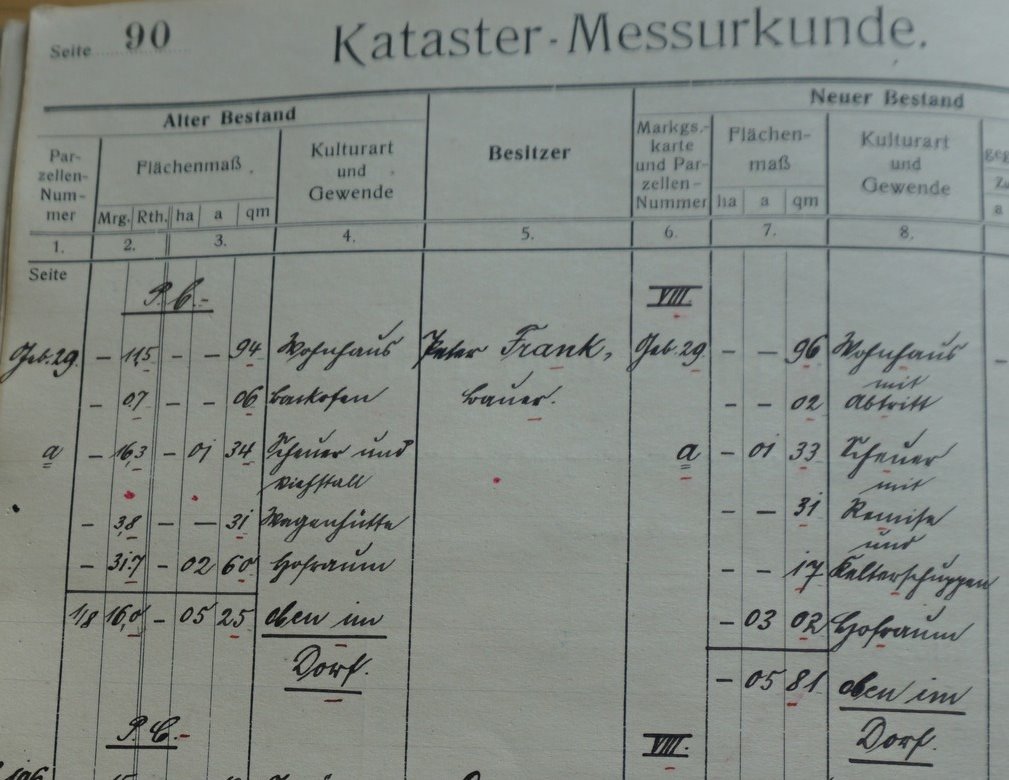 Seite 90
Kataster-Messurkunde.
Alter Bestand
Besitzer
Neuer Bestand
Par-
zellen-
Num-
mer
Flächenmaß
Kulturart
und
Gewende
Markgs.-
karte
und Par-
zellen-
Nummer
Flächen-
maß
Kulturart
und
Gewende
geg
Zu
a
Mrg. Rth. ha a qm
ha a qm
1. 2. 3. 4. 5. 6. 7. 8.
Seite
VIII.
Geb. 29 – 11,5 – – 94 Wohnhaus Peter Frank, Geb. 29 – – 96 Wohnhaus
mit
– 0,7 – – 06 Backofen Bauer. – – 02 Abtritt
a – 16,3 – 01 34 Scheuer und a – 01 33 Scheuer
Viehstall mit
– 3,8 – – 31 Wagenhütte – – 31 Remise
und
– 31,7 – 02 60 Hofraum – – 17 Kelterschuppen
1/8 16,0 – 05 25 oben im – 03 02 Hofraum
Dorf. – 05 81 oben im
Dorf.
VIII.